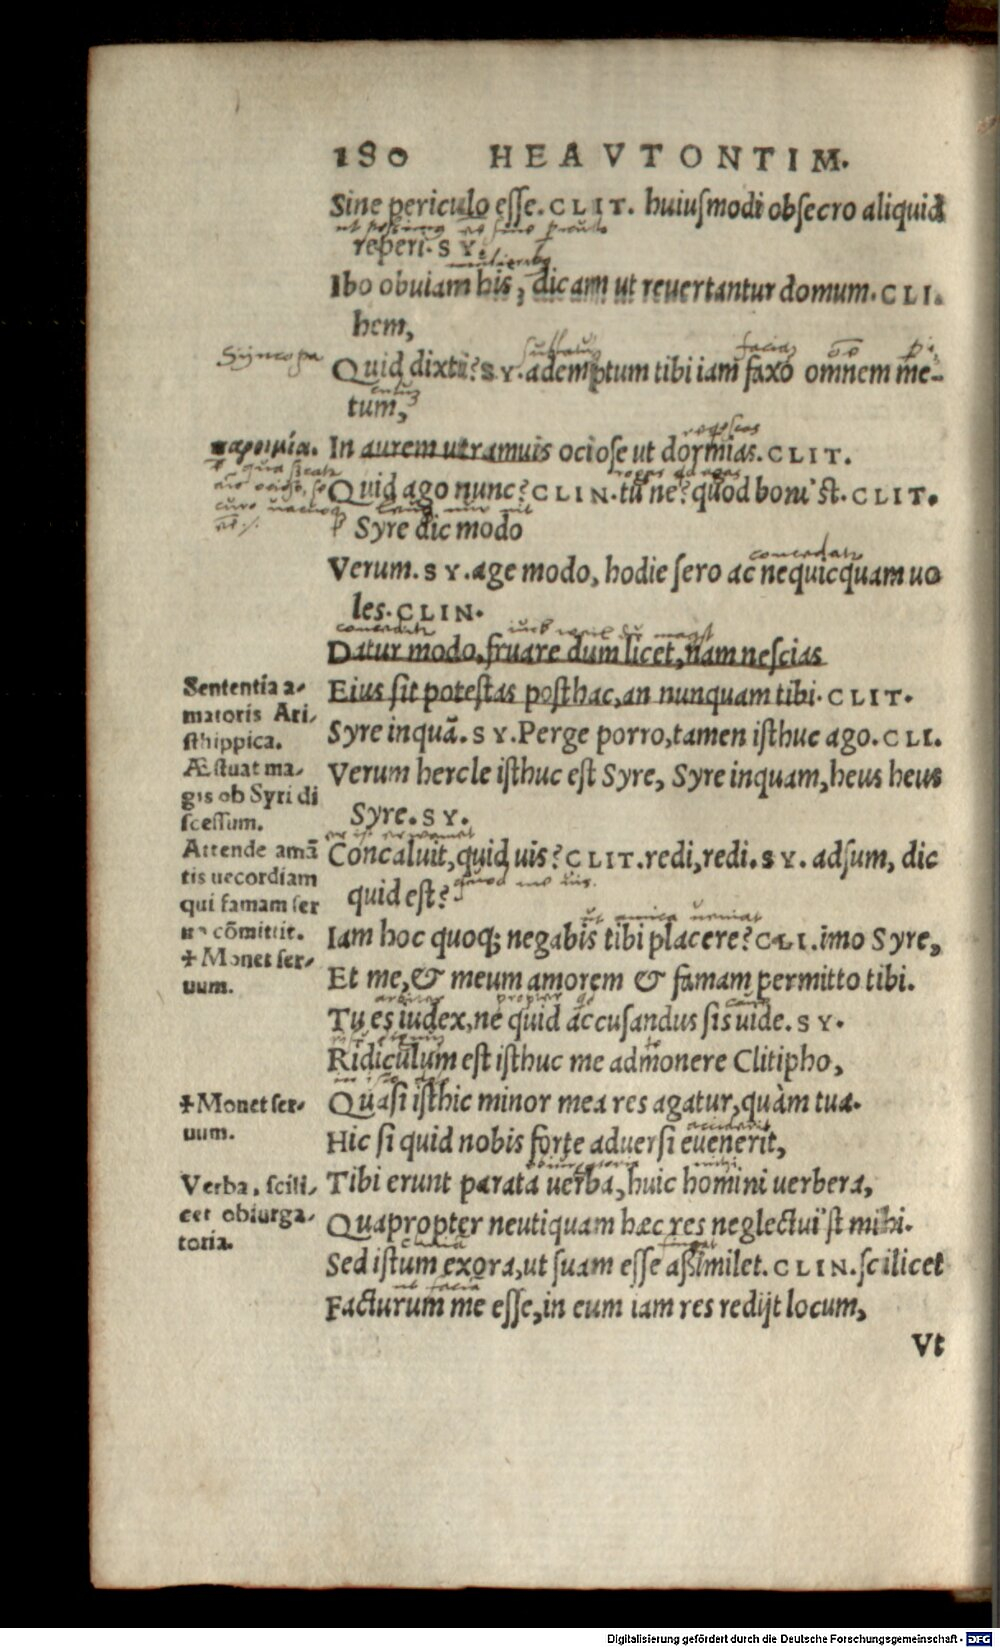 180 HEAVTONTIM.
Sine periculo esse. CLIT. huiusmodi obsecro aliquid
reperi. SY.
Ibo obuiam his, dicam ut reuertantur domum. CLI.
hem,
Syncopa
Quid dixti? SY. ademptum tibi iam faxo omnem me-
tum,
παροιμία.
In aurem utramuis ociose ut dormias. CLIT.
Quid ago nunc? CLIN. tu ne? quod boni 'st. CLIT.
Syre dic modo
concedatur
Verum. SY. age modo, hodie sero ac nequicquam uo
les. CLIN.
Datur modo, fruare dum licet, nam nescias
Sententia a-
matoris Ari-
sthippica.
Eius sit potestas posthac, an nunquam tibi. CLIT.
Syre inquā. SY. Perge porro, tamen isthuc ago. CLI.
Æstuat ma-
gis ob Syri di
scessum.
Verum hercle isthuc est Syre, Syre inquam, heus heus
Syre. SY.
Attende amā
tis uecordiam
qui famam ser
uo cōmittit.
Concaluit, quid uis? CLIT. redi, redi. SY. adsum, dic
quid est?
ut amica ueniat
Iam hoc quoq; negabis tibi placere? CLI. imo Syre,
✝ Monet ser-
uum.
Et me, & meum amorem & famam permitto tibi.
Tu es iudex, ne quid accusandus sis uide. SY.
Ridiculum est isthuc me admonere Clitipho,
✝ Monet ser-
uum.
Quasi isthic minor mea res agatur, quàm tua.
Hic si quid nobis forte aduersi euenerit,
Verba, scili-
cet obiurga-
toria.
Tibi erunt parata uerba, huic homini uerbera,
Quapropter neutiquam hæc res neglectui 'st mihi.
Sed istum exora, ut suam esse aßimilet. CLIN. scilicet
Facturum me esse, in eum iam res redijt locum,
Vt
Digitalisierung gefördert durch die Deutsche Forschungsgemeinschaft - DFG